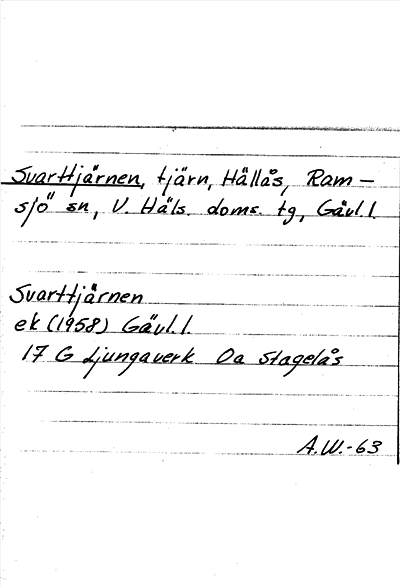 Svarttjärnen, tjärn, Hällås, Ram-
sjö sn, V. Häls. doms. tg, Gävl.l.
Svarttjärnen
ek (1958) Gävl.l.
17 G Ljungaverk 0a Stagelås
A.W.-63